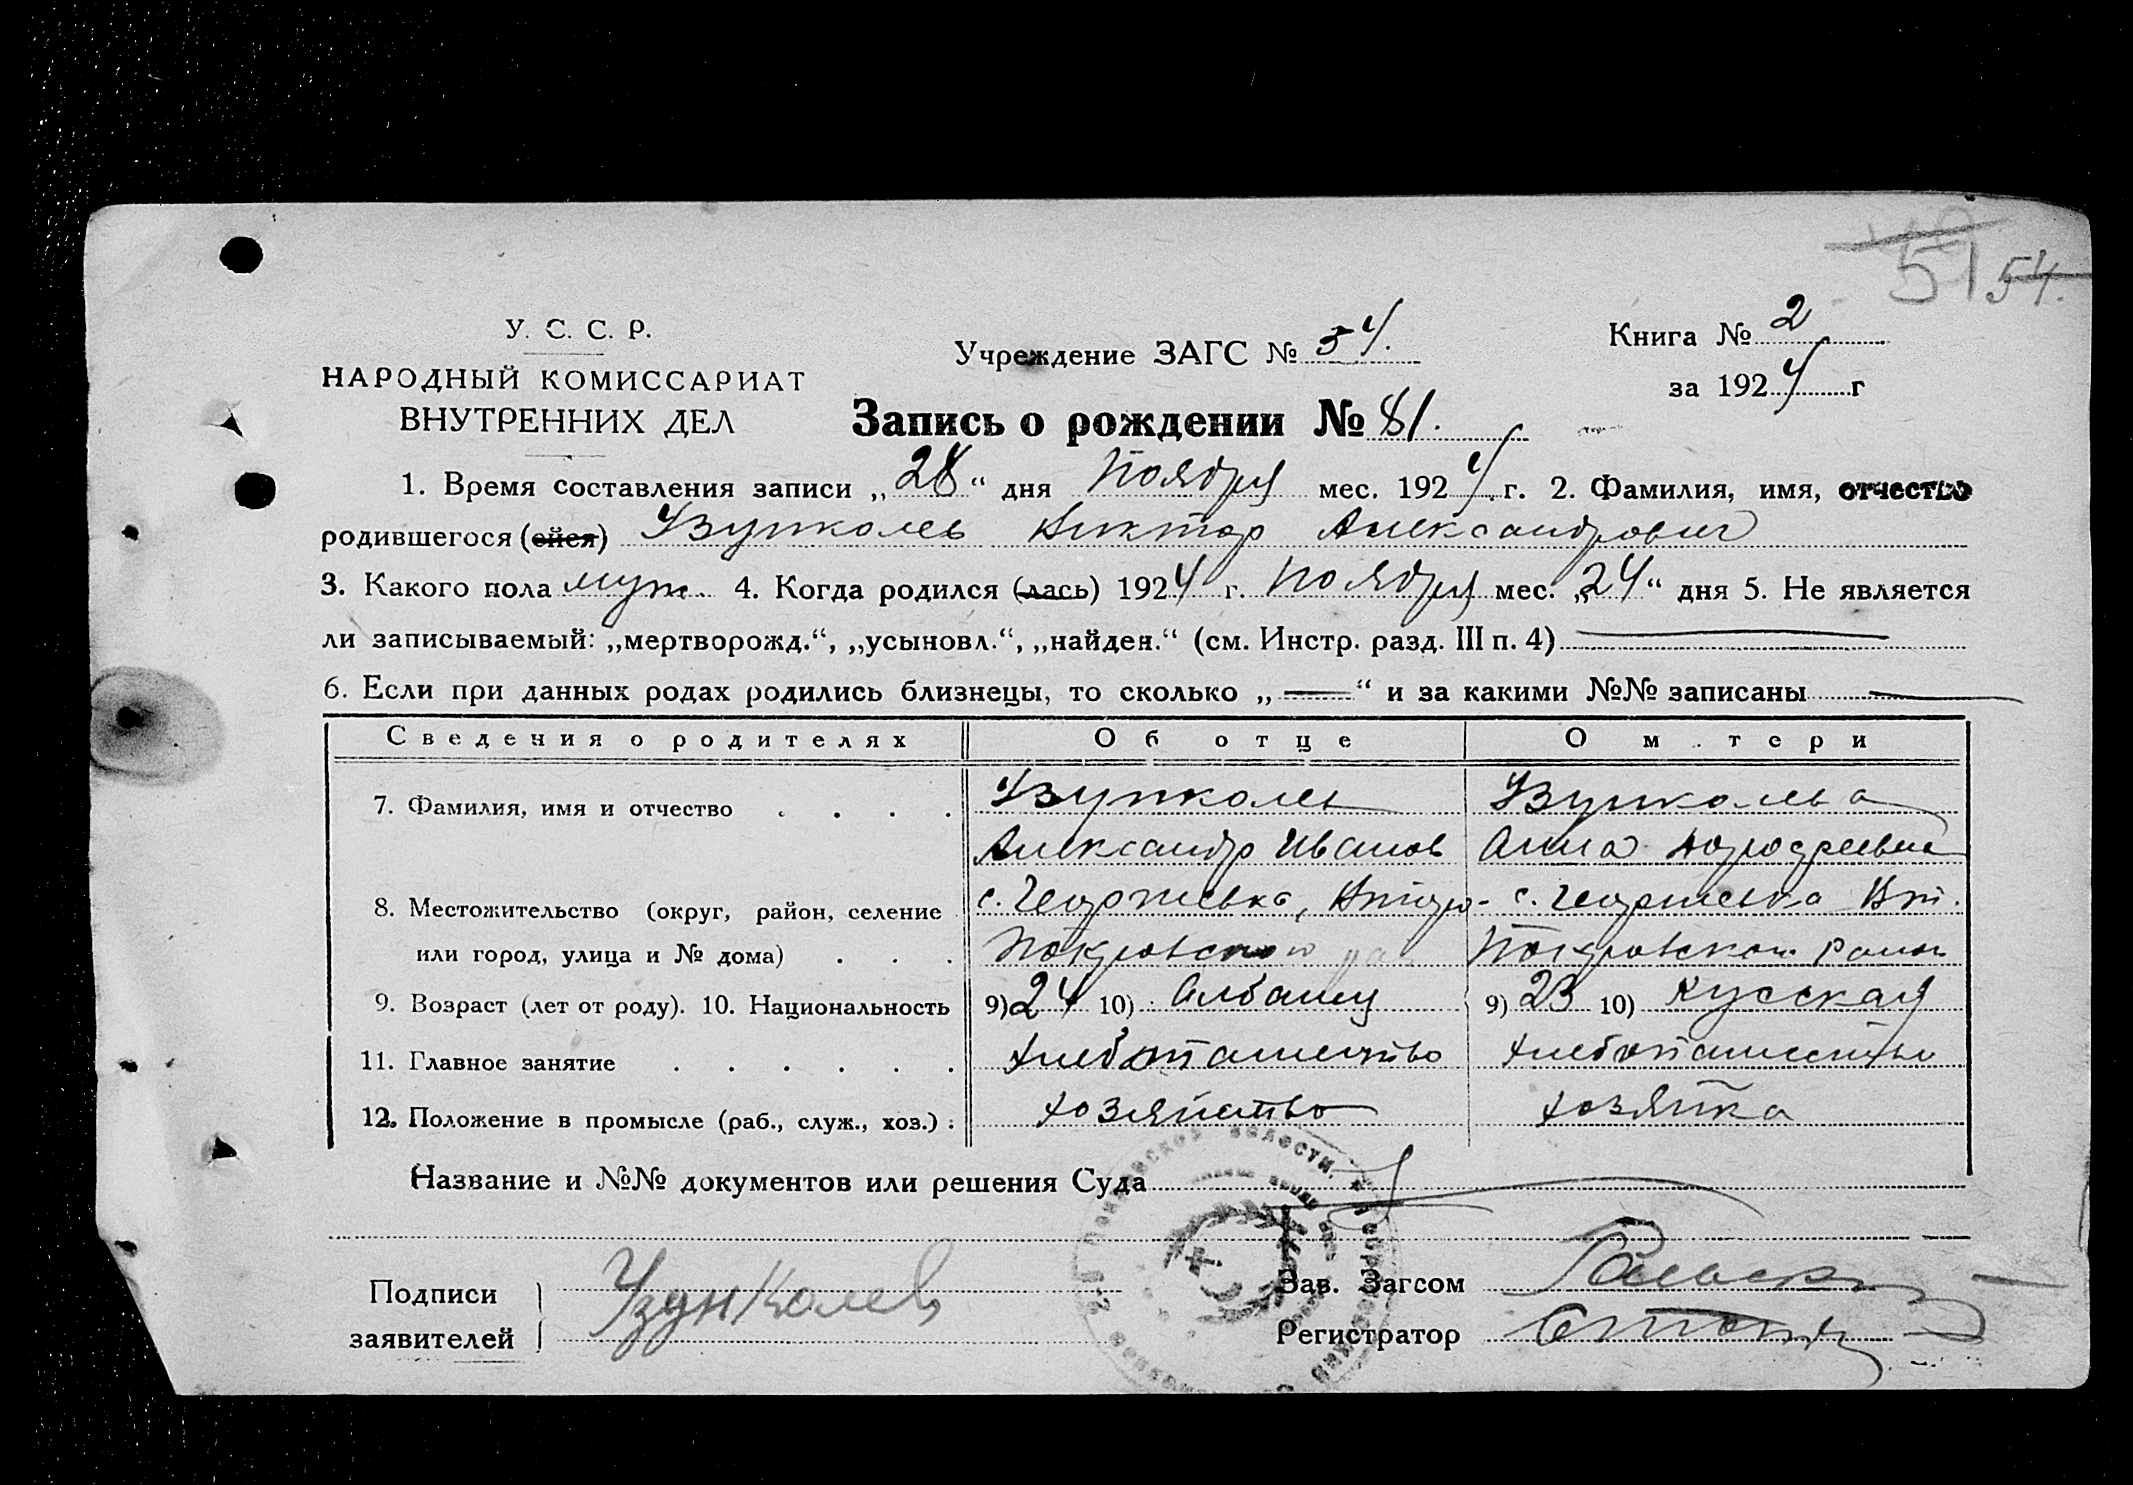 51 54.
У. С. С. Р.
НАРОДНЫЙ КОМИССАРИАТ
ВНУТРЕННИХ ДЕЛ
Учреждение ЗАГС № 54.
Книга № 2
за 1924 г
Запись о рождении № 81.
1. Время составления записи „28“ дня Ноября мес. 1924 г. 2. Фамилия, имя, отчество
родившегося (ейся) Узунколев Виктор Александрович
3. Какого пола муж. 4. Когда родился (лась) 1924 г. Ноября мес. „24“ дня 5. Не является
ли записываемый: „мертворожд.“, „усыновл.“, „найден.“ (см. Инстр. разд. III п. 4)
6. Если при данных родах родились близнецы, то сколько „—“ и за какими №№ записаны —
Сведения о родителях Об отце О м.тери
7. Фамилия, имя и отчество . . . . Узунколев Узунколева
Александр Иванов Анна
8. Местожительство (округ, район, селение с. Георгиевка, - с. Георгиевка
или город, улица и № дома) . . . Покровского Покровского район
9. Возраст (лет от роду). 10. Национальность 9) 24 10) Албанец 9) 23 10) Русская
11. Главное занятие . . . . . . хлебопашество хлебопашество
12. Положение в промысле (раб., служ., хоз.) : хозяйство хозяйка
Название и №№ документов или решения Суда
Подписи
заявителей
Узунколев
Зав. Загсом
Регистратор